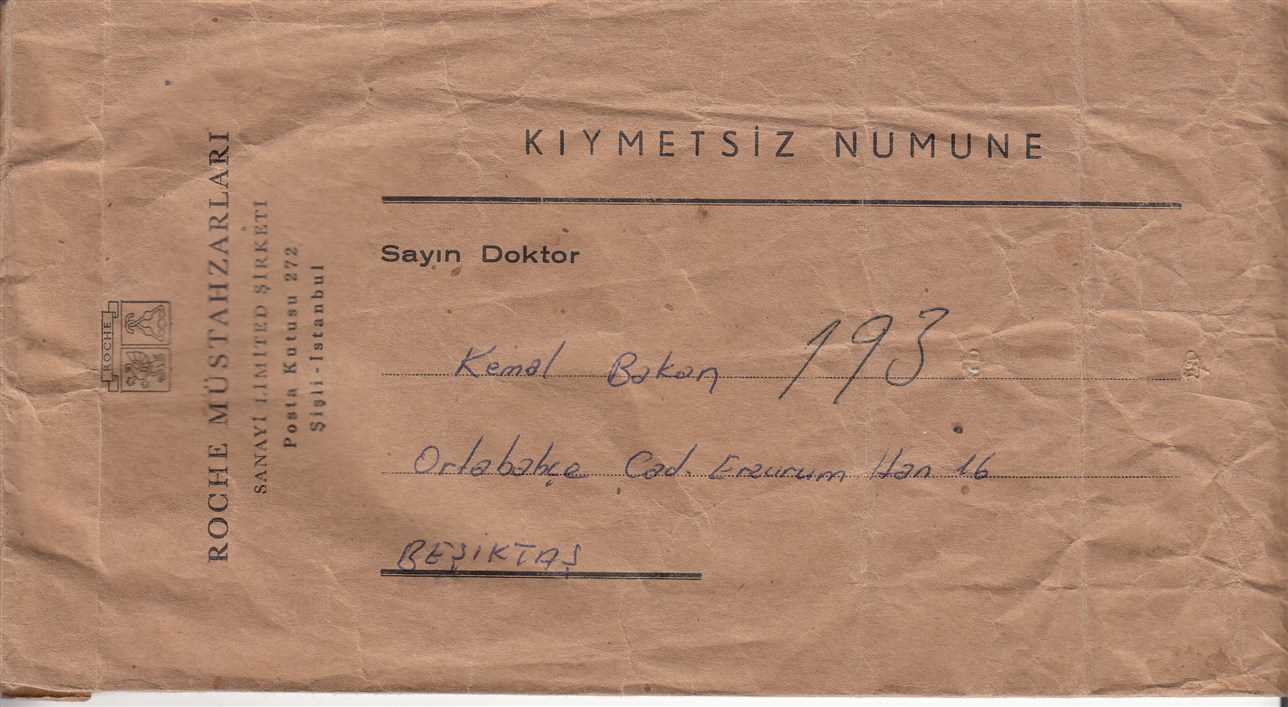 KIYMETSİZ NUMUNE
Sayın Doktor
Kemal Bakan 193
Ortabahçe Cad. Erzurum Han 16
BEŞİKTAŞ
ROCHE
ROCHE MÜSTAHZARLARI
SANAYİ LİMİTED ŞİRKETİ
Posta Kutusu 272
Şişli - Istanbul